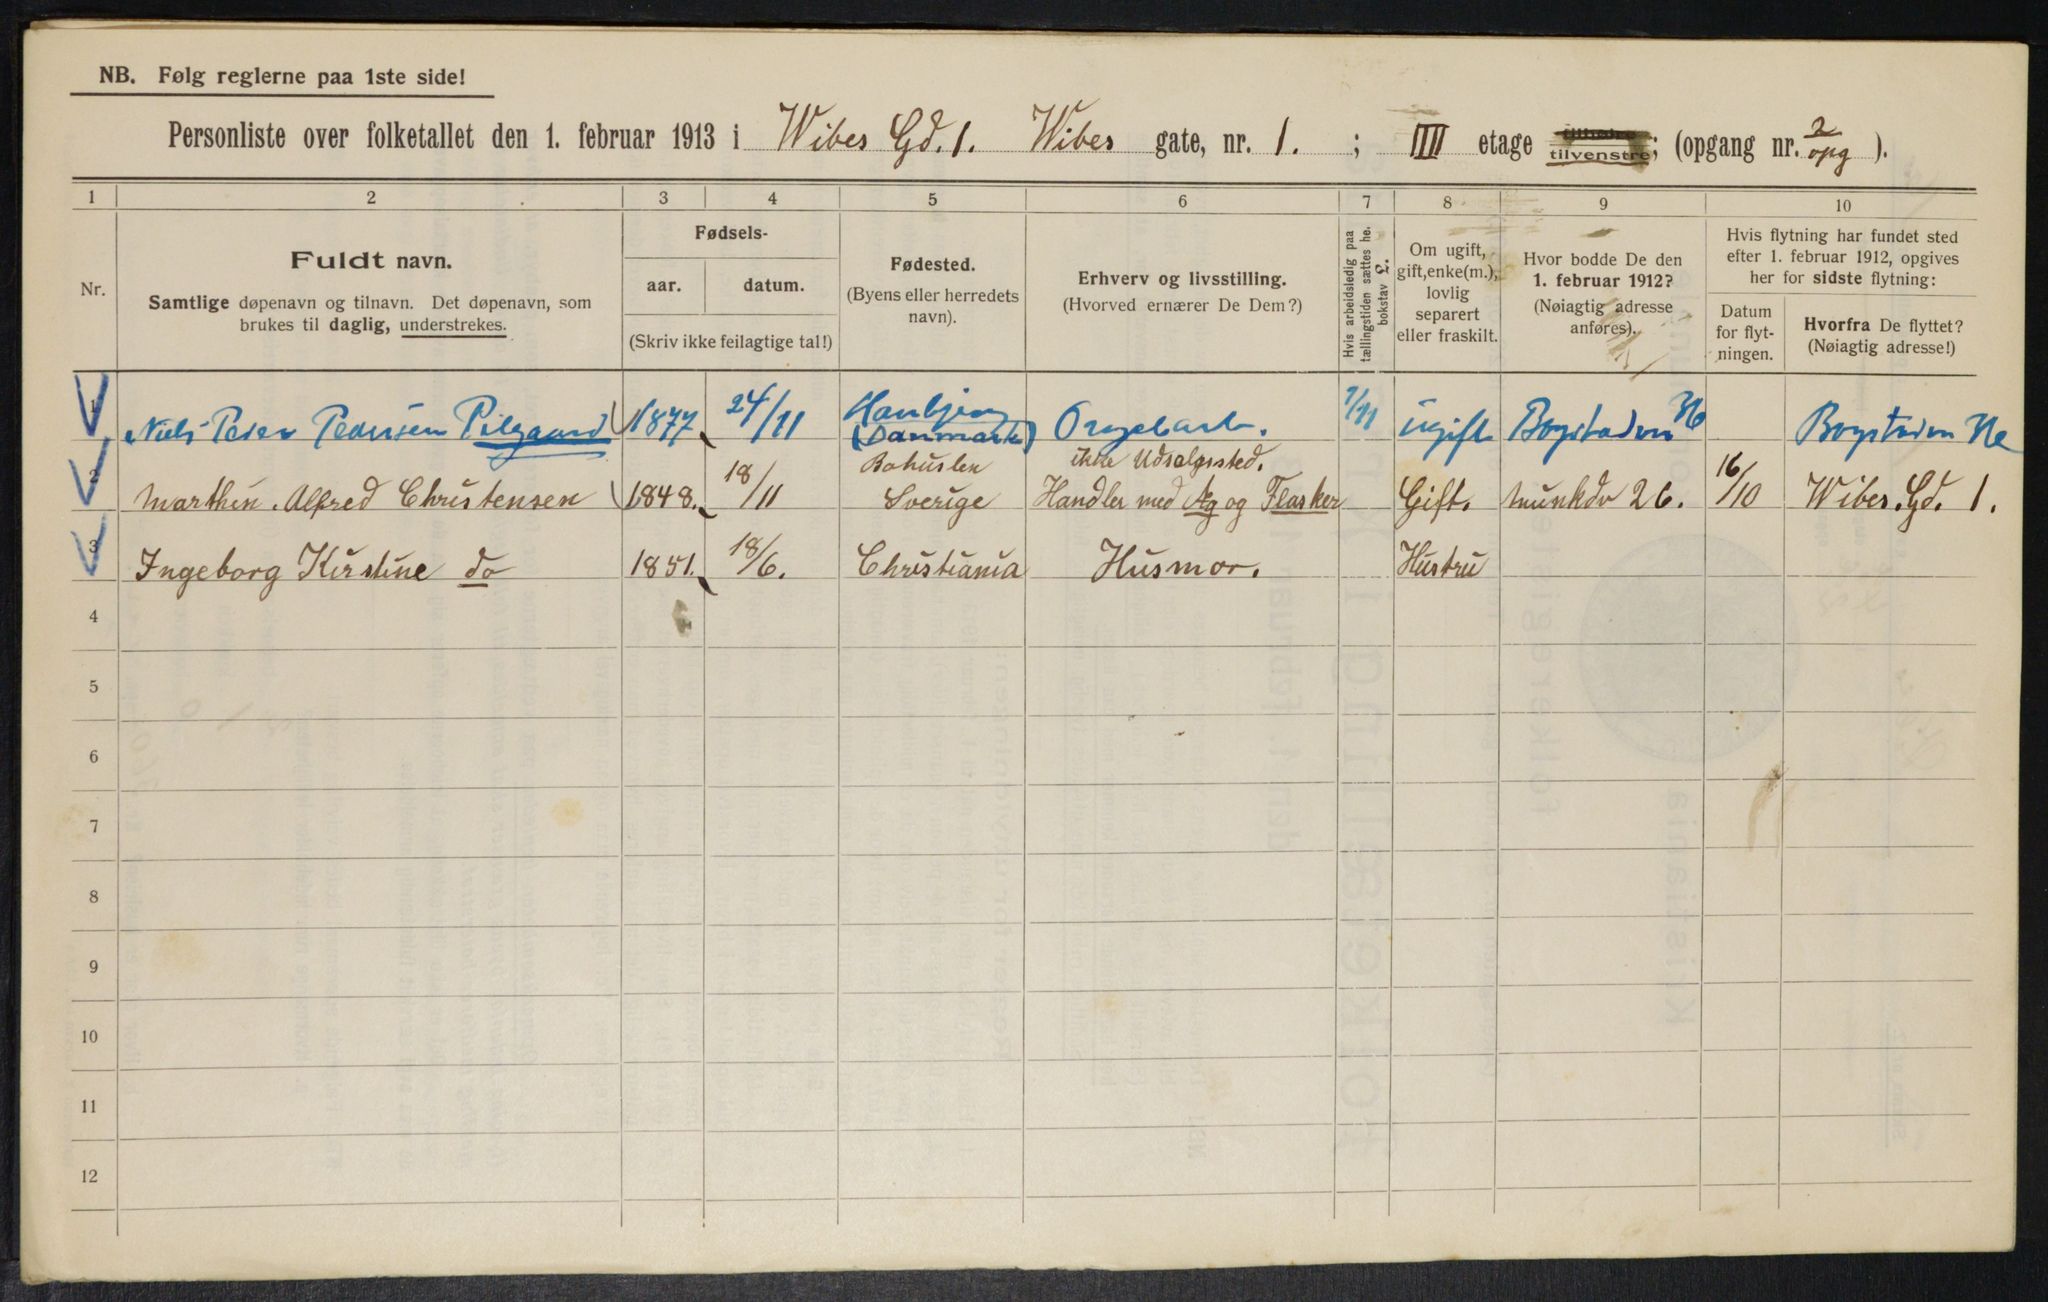 NB. Følg reglerne paa 1ste side!
Personliste over folketallet den 1. februar 1913 i Wibes Gd. 1. Wibes gate, nr. 1. ; IIII etage tilhøire tilvenstre; (opgang nr. 2 opg ).
1 2 3 4 5 6 7 8 9 10
Nr.
Fuldt navn.
Samtlige døpenavn og tilnavn. Det døpenavn, som
brukes til daglig, understrekes.
Fødsels-
aar. datum.
(Skriv ikke feilagtige tal!)
Fødested.
(Byens eller herredets
navn).
Erhverv og livsstilling.
(Hvorved ernærer De Dem?)
Hvis arbeidsledig paa
tællingstiden sættes he.
bokstav £.
Om ugift,
gift, enke(m.),
lovlig
separert
eller fraskilt.
Hvor bodde De den
1. februar 1912?
(Nøiagtig adresse
anføres).
Hvis flytning har fundet sted
efter 1. februar 1912, opgives
her for sidste flytning:
Datum
for flyt-
ningen.
Hvorfra De flyttet?
(Nøiagtig adresse!)
1 Niels Peder Pedersen Pilgaard 1877 24/11 (Danmark) 1/11 ugift
2 Marthin. Alfred Christensen 1848. 18/11 Bohuslen Sverige ikke Udsalgssted. Handler med Æg og Flasker Gift. Munkdv 26. 16/10 Wibes. Gd. 1.
3 Ingeborg Kirstine do 1851. 18/6. Christiania Husmor. Hustru
4
5
6
7
8
9
10
11
12